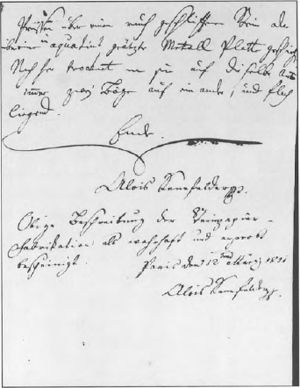 Pressen über eine auch geschliffene Stein als
eine aquatint geätzte Metall Platt geschieht
Nachher trocknet man sie auf dieselbe
immer zwei Böge auf ein ander, und flach
liegend.
Ende.
Alois Senefelder
Obige Beschreibung der Steinpapier-
Fabrikation als wahrhaft und
bescheinigt. Paris den 12 März 1821
Alois Senefelder